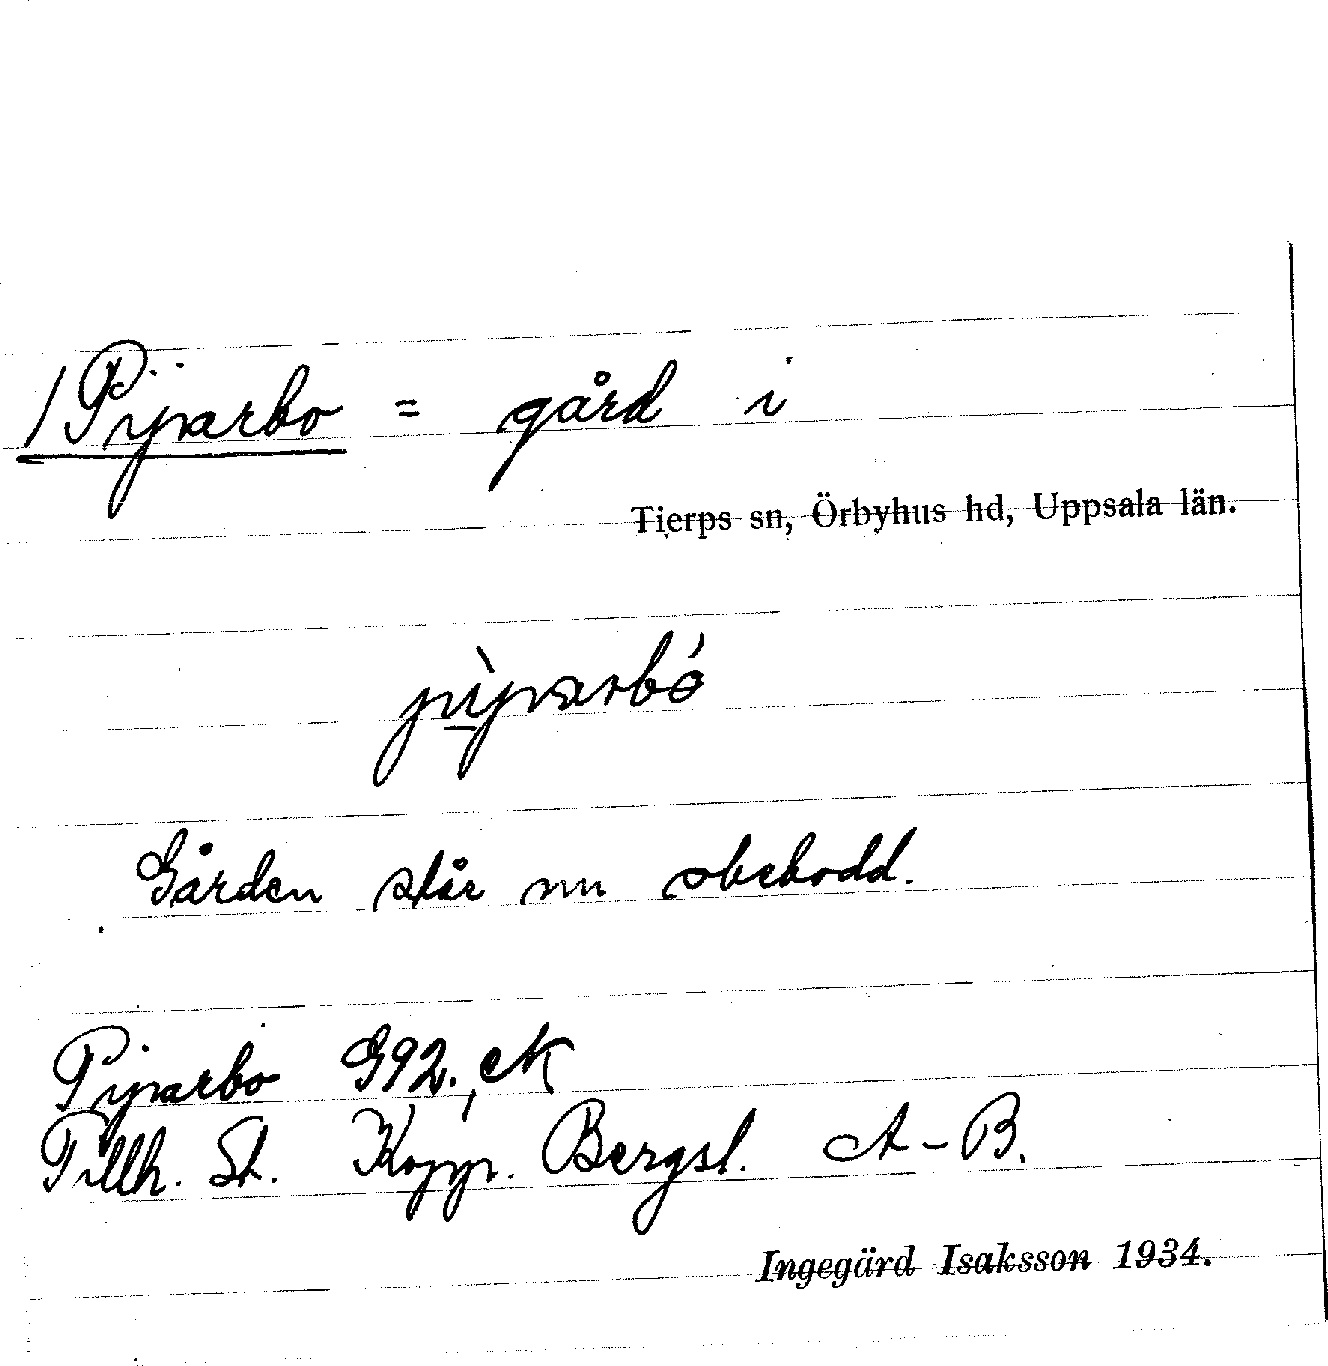 /Piparbo = gård i
Tierps sn, Örbyhus hd, Uppsala län.
pìparbó
Gården står nu obebodd.
Piparbo G92., EK
Tillh. St. Koppr. Bergsl. A-B.
Ingegärd Isaksson 1934.